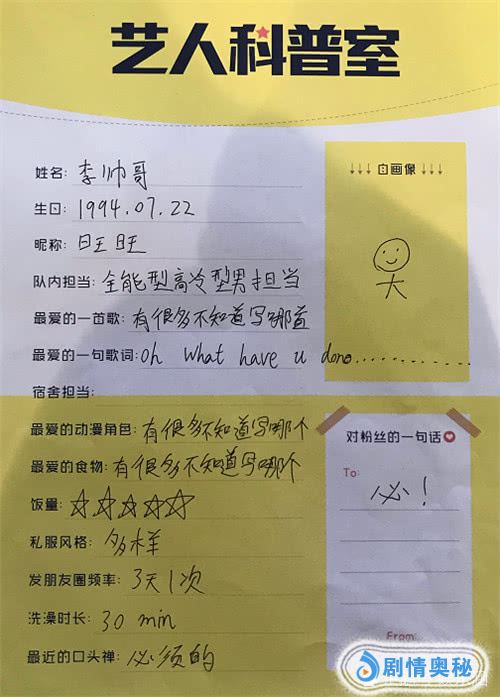 艺人科普室
姓名: 李帅哥
↓↓↓ 自画像 ↓↓↓
生日: 1994.07.22
昵称: 旺旺
队内担当: 全能型高冷型男担当
最爱的一首歌: 有很多不知道写哪首
最爱的一句歌词: oh what have u done............
宿舍担当:
最爱的动漫角色: 有很多不知道写哪个
对粉丝的一句话
最爱的食物: 有很多不知道写哪个
To:
必!
饭量: ☆☆☆☆☆
私服风格: 多样
发朋友圈频率: 3天1次
洗澡时长: 30 min
From:
最近的口头禅: 必须的
剧情奥秘